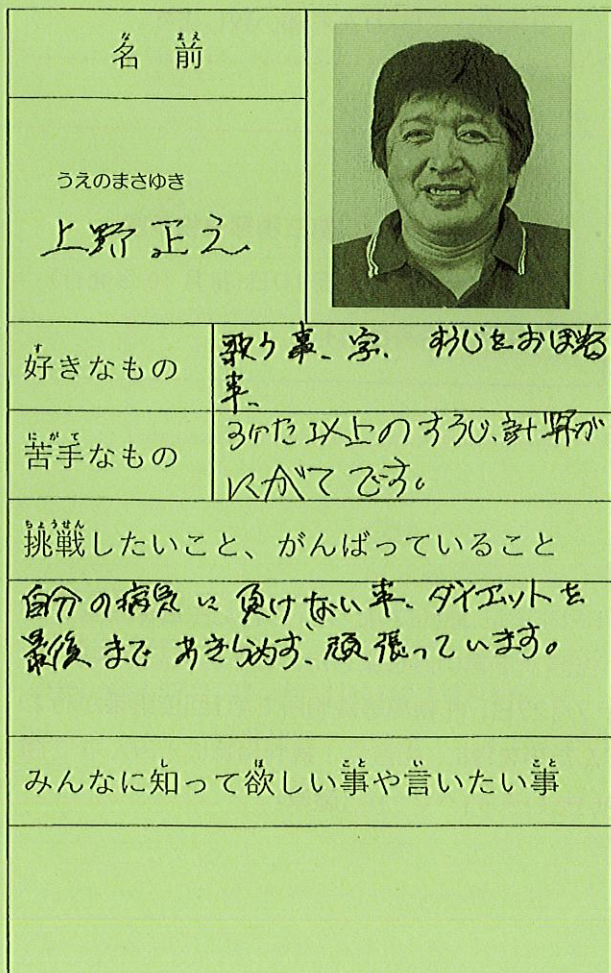 名前
うえのまさゆき
上野正之
好きなもの
歌う事、字、すうじをおぼえる
事、
苦手なもの
3けた以上のすうじ、計算が
にがてです。
挑戦したいこと、がんばっていること
自分の病気に負けない事、ダイエットを
最後まであきらめず、頑張っています。
みんなに知って欲しい事や言いたい事